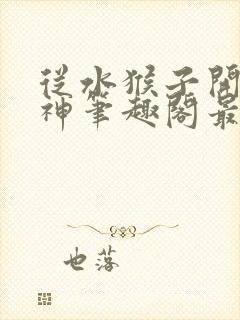 從水猴子開
神筆趣閣最
也落